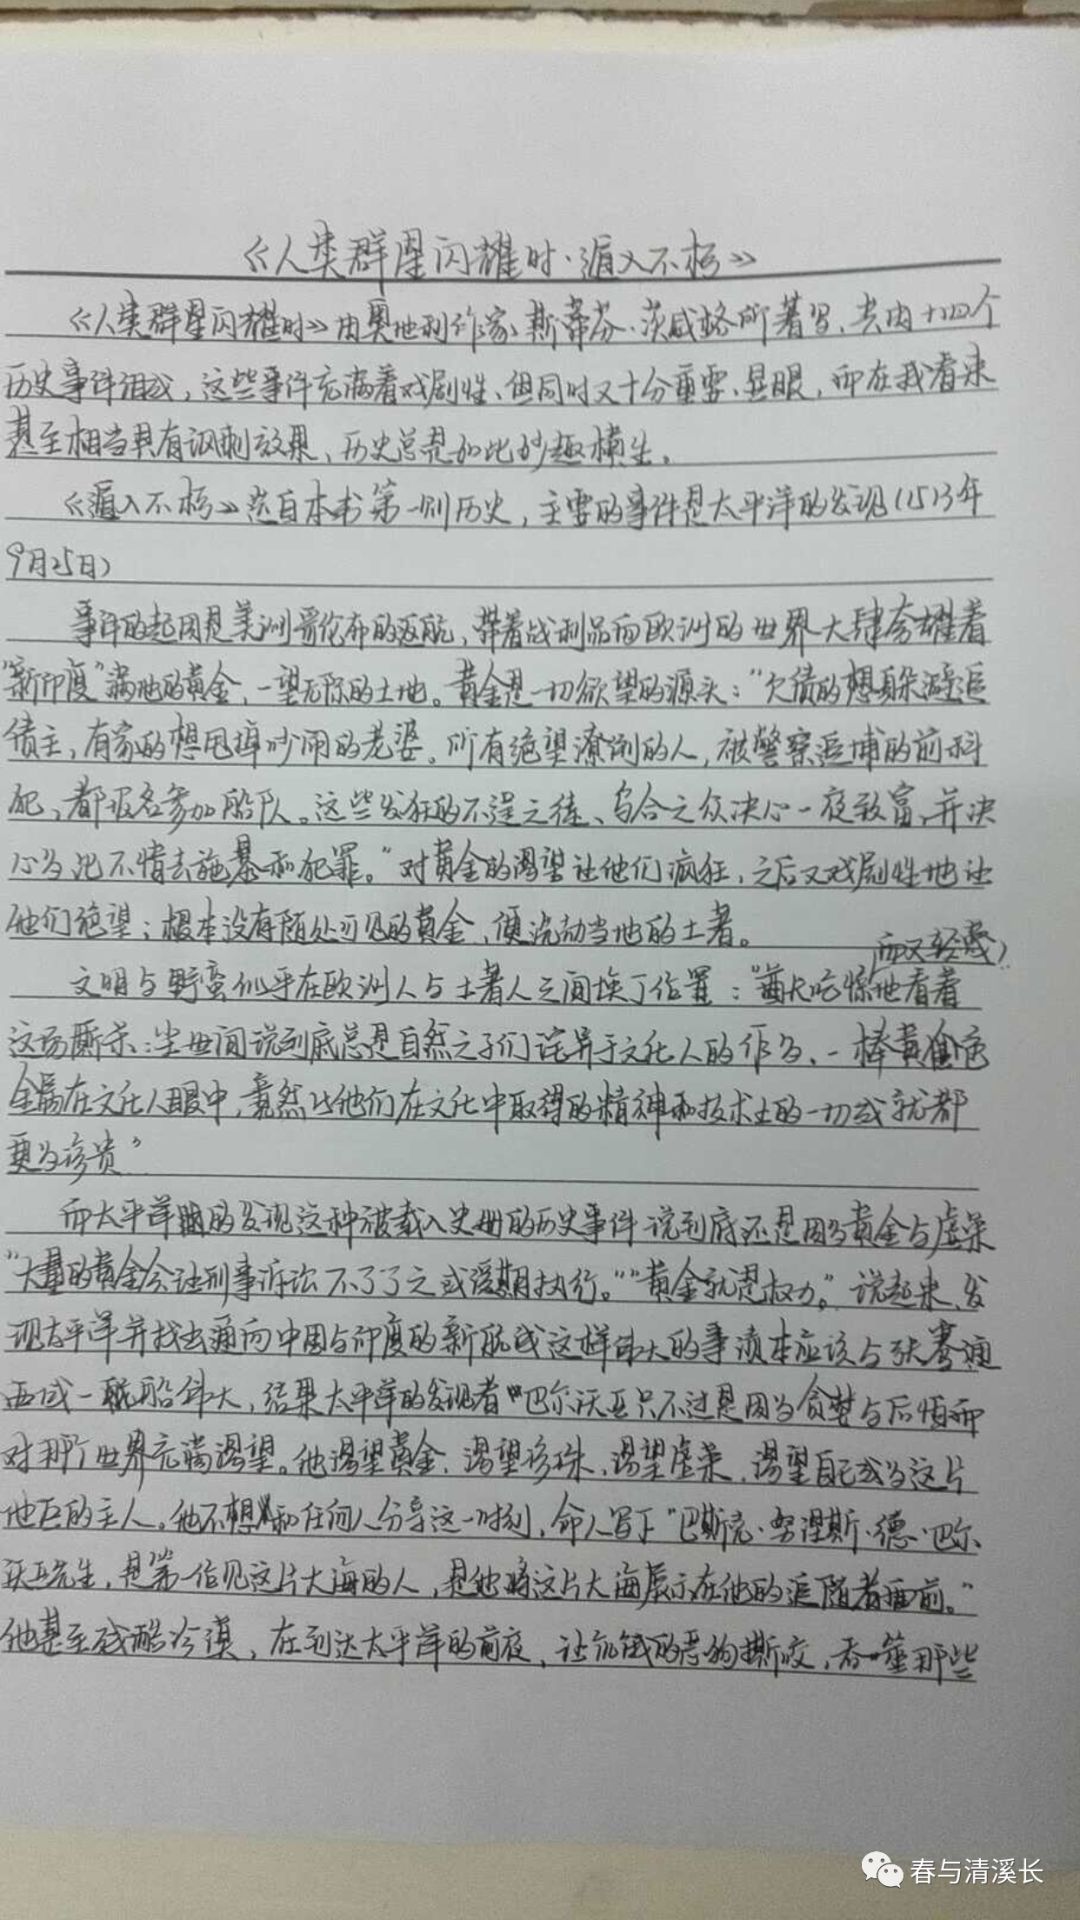 《人类群星闪耀时·遁入不朽》
《人类群星闪耀时》由奥地利作家斯蒂芬·茨威格所著写,共由十四个
历史事件组成,这些事件充满着戏剧性、但同时又十分重要、显眼,而在我看来
甚至相当具有讽刺效果,历史总是如此妙趣横生。
《遁入不朽》选自本书第一则历史,主要的事件是太平洋的发现(1513年
9月25日)
事件的起因是美洲哥伦布的返航,带着战利品向欧洲的世界大肆夸耀着
"新印度"满地的黄金,一望无际的土地。黄金是一切欲望的源头:"欠债的想躲避追
债主,有家的想甩掉吵闹的老婆。所有绝望潦倒的人,被警察追捕的前科
犯,都报名参加船队。这些发狂的不逞之徒、乌合之众决心一夜致富,并决
心为此不惜去施暴和犯罪。"对黄金的渴望让他们疯狂,之后又戏剧性地让
他们绝望;根本没有随处可见的黄金,便流动当地的土著。
而又轻蔑)
文明与野蛮似乎在欧洲人与土著人之间换了位置:"酋长吃惊地看着
这场厮杀:尘世间说到底总是自然之子们诧异于文化人的作为、一棒黄色
金属在文化人眼中,竟然比他们在文化中取得的精神和技术上的一切成就都
更为珍贵"
而太平洋的发现这种被载入史册的历史事件说到底还是因为黄金与虚荣
"大量的黄金会让刑事诉讼不了了之或缓期执行。""黄金就是权力。"说起来,发
现太平洋并找出通向中国与印度的新航线这样伟大的事迹本应该与张骞通
西域一般伟大,结果太平洋的发现者"巴尔沃亚只不过是因为贪婪与后怕而
对那个世界充满渴望。他渴望黄金,渴望珍珠,渴望虚荣,渴望自己成为这片
地区的主人。他不想和任何人分享这一时刻,命人写下"巴斯克·努涅斯·德·巴尔
沃亚先生,是第一位见这片大海的人,是他将这片大海展示在他的追随者面前。"
他甚至残酷冷漠,在到达太平洋的前夜,让饥饿的恶狗撕咬,吞噬那些
春与清溪长